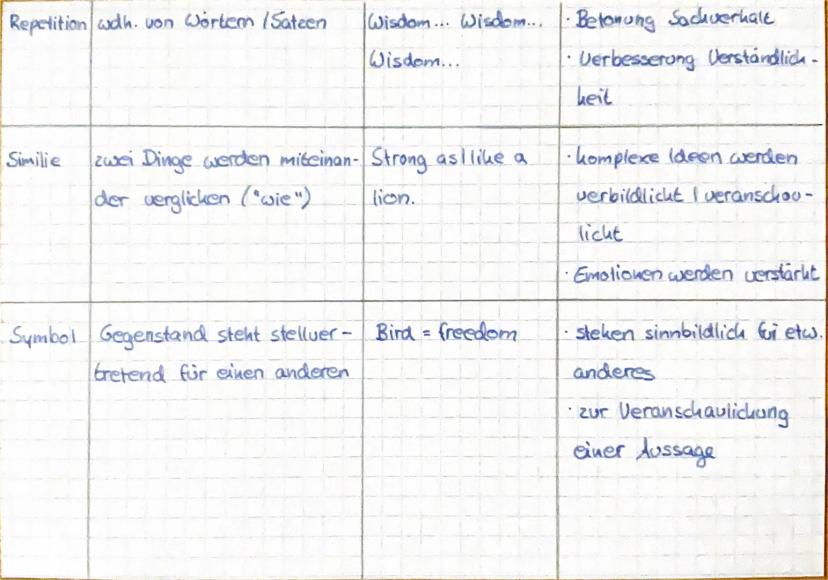 Repetition
wdh. von Wörtern / Sätzen
Wisdom... Wisdom...
Wisdom...
· Betonung Sachverhalt
· Verbesserung Verständlich-
keit
Similie
zwei Dinge werden miteinan-
der verglichen ("wie")
Strong as/like a
lion.
· komplexe Ideen werden
verbildlicht / veranschau-
licht
· Emotionen werden verstärkt
Symbol
Gegenstand steht stellver-
tretend für einen anderen
Bird = freedom
· stehen sinnbildlich für etw.
anderes
· zur Veranschaulichung
einer Aussage